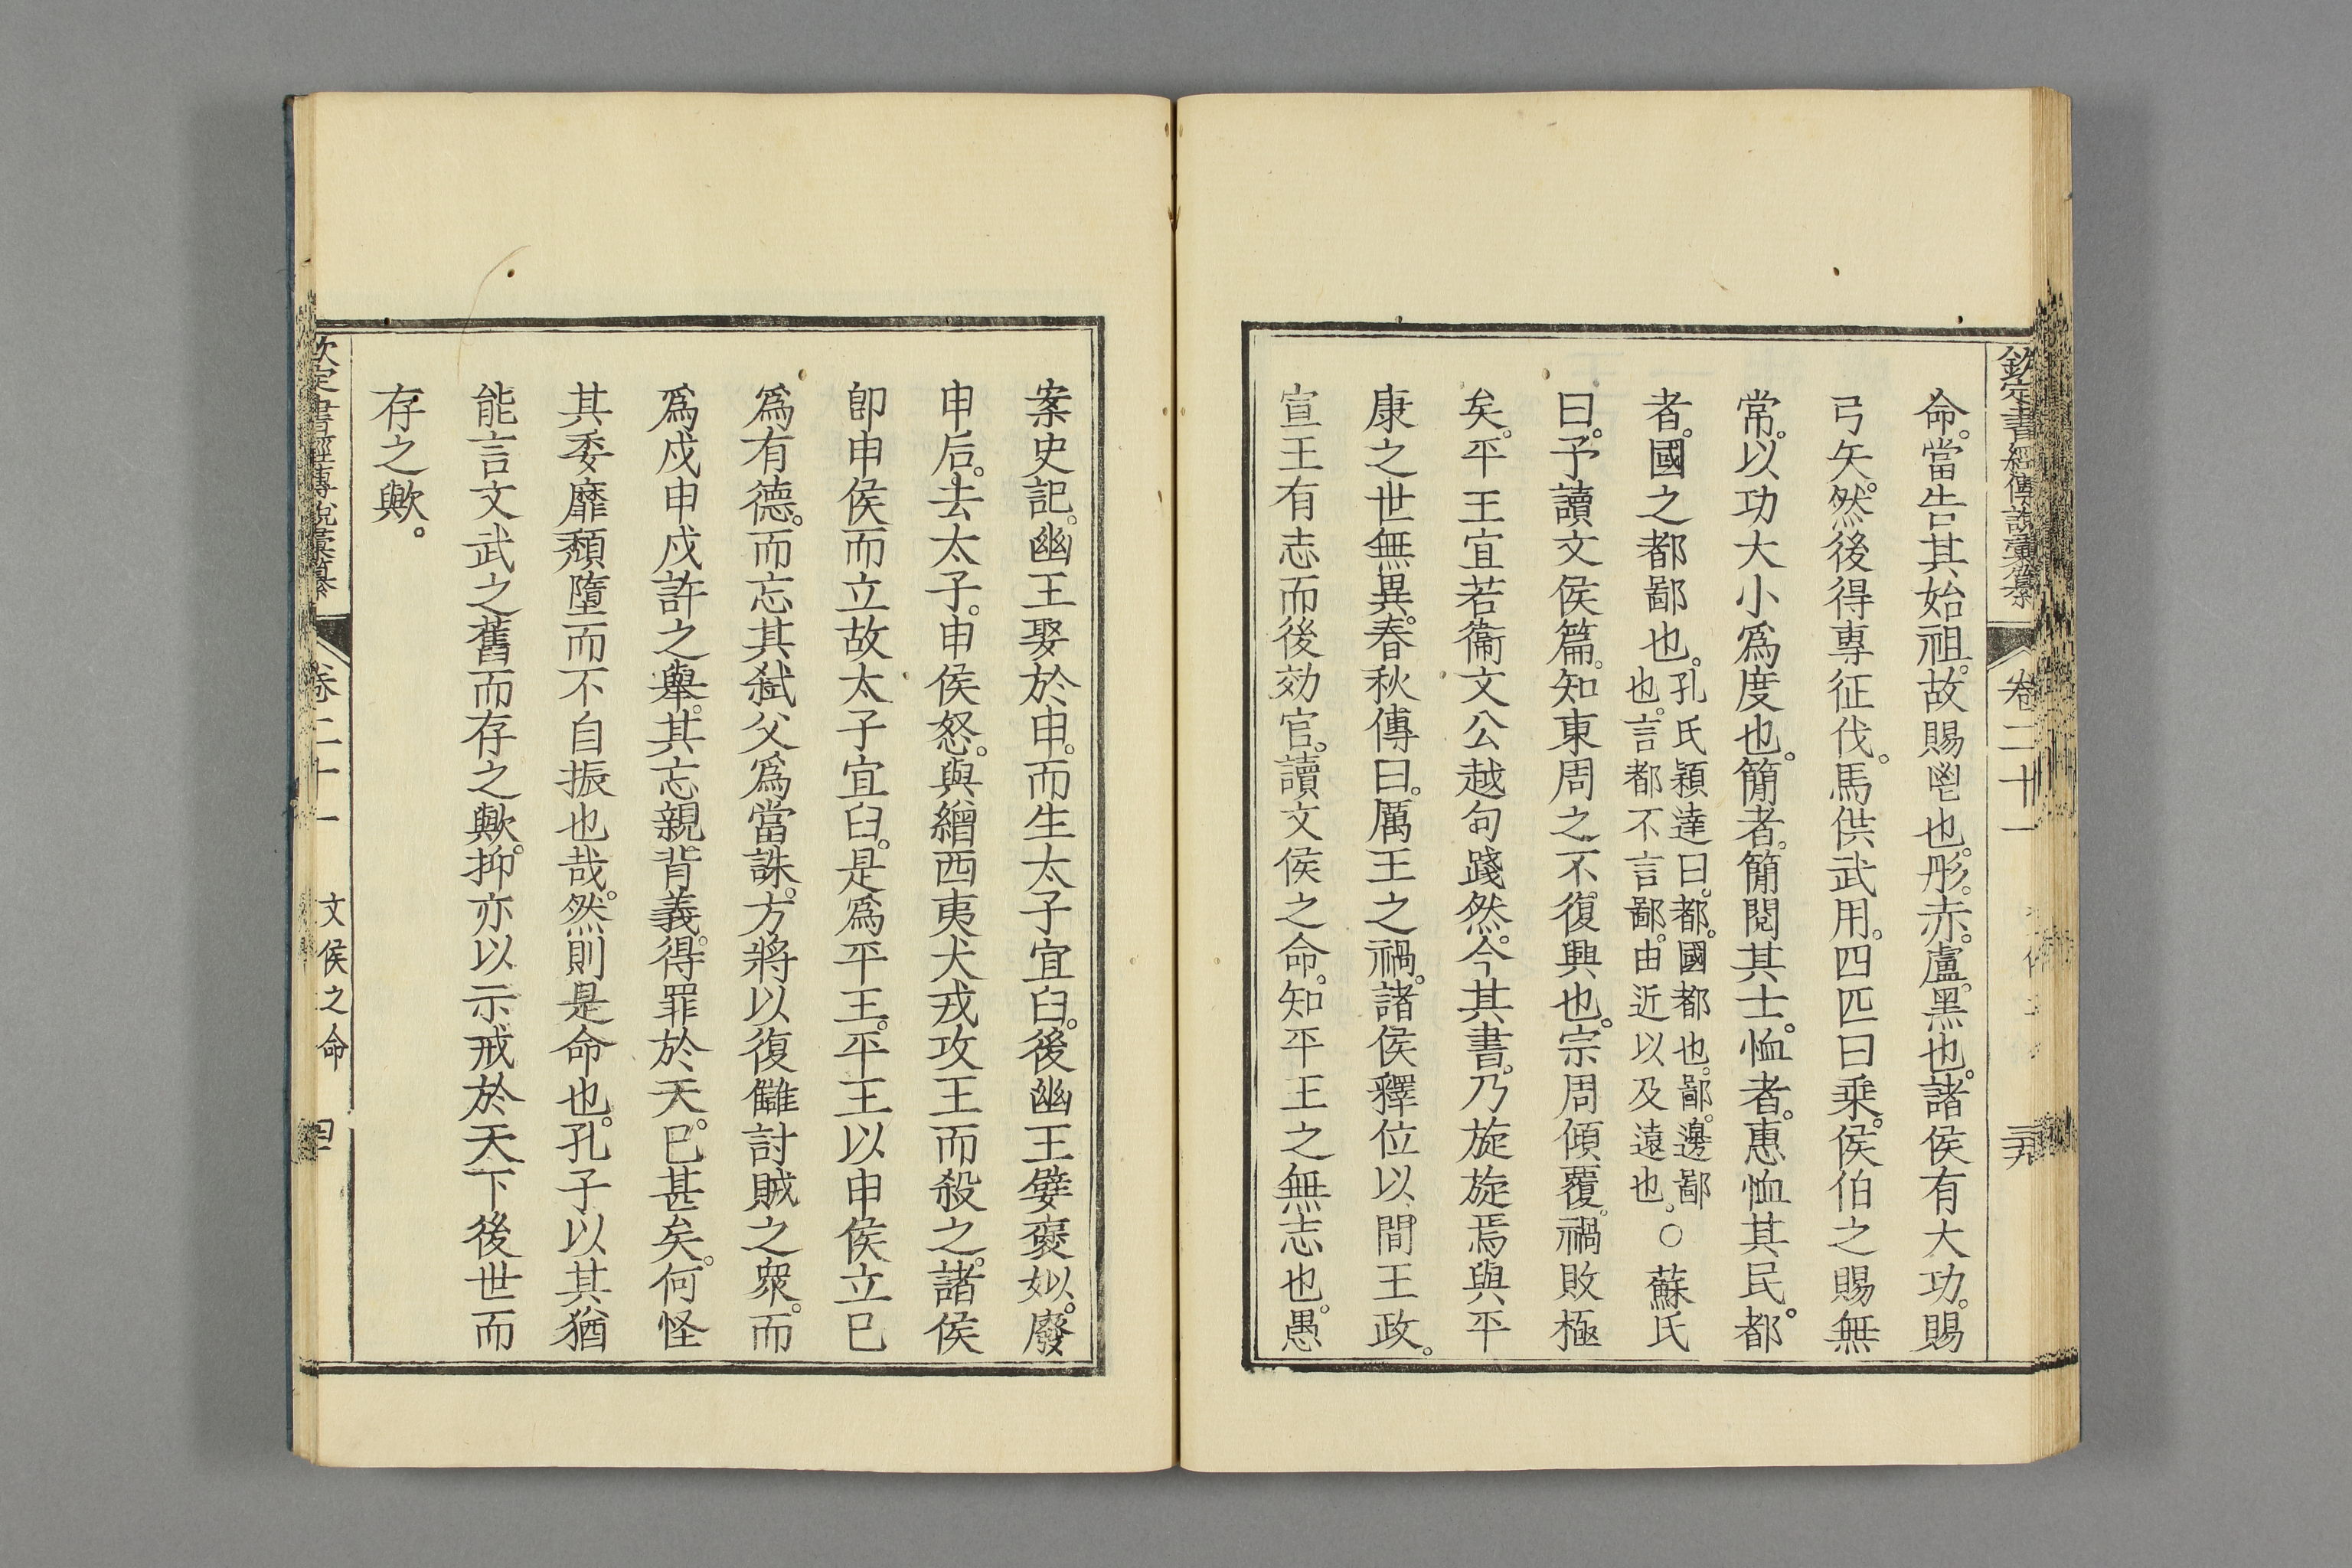 欽定書經傳說彙纂 卷二十一 三九
命。當告其始祖。故賜鬯也。彤。赤。盧。黑也。諸侯有大功。賜
弓矢。然後得專征伐。馬供武用。四匹曰乘。侯伯之賜無
常。以功大小爲度也。簡者。簡閱其士。恤者。惠恤其民。都
者。國之都鄙也。
孔氏穎達曰。都。國都也。鄙。邊鄙
也。言都不言鄙。由近以及遠也。
○蘇氏
曰。予讀文侯篇。知東周之不復興也。宗周傾覆。禍敗極
矣。平王宜若衞文公越句踐然。今其書。乃旋旋焉與平
康之世無異。春秋傳曰。厲王之禍。諸侯釋位以間王政。
宣王有志而後効官。讀文侯之命。知平王之無志也。愚
案史記。幽王娶於申。而生太子宜臼。後幽王嬖褒姒。廢
申后。去太子。申侯怒。與繒西夷犬戎攻王而殺之。諸侯
卽申侯而立故太子宜臼。是爲平王。平王以申侯立已
爲有德。而忘其弑父爲當誅。方將以復讎討賊之衆。而
爲戍申戍許之舉。其忘親背義。得罪於天。已甚矣。何怪
其委靡頹墮而不自振也哉。然則是命也。孔子以其猶
能言文武之舊而存之歟。抑亦以示戒於天下後世而
存之歟。
欽定書經傳說彙纂 卷二十一 文侯之命 四